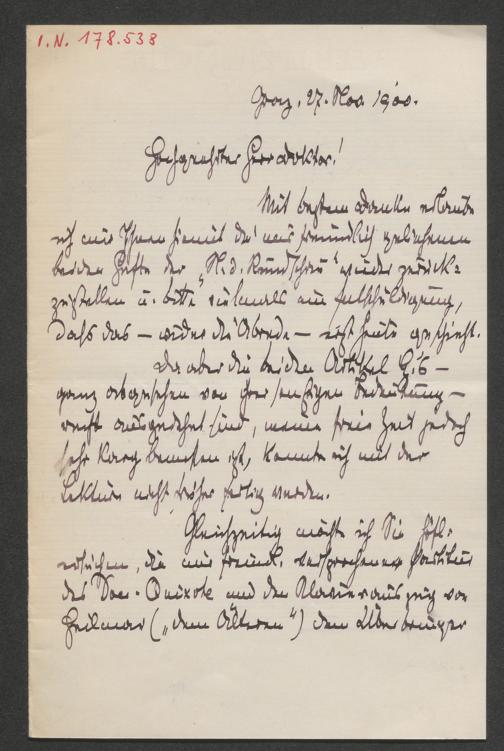 I.N. 178.538
Graz, 27. Nov. 1900.
Hochgeehrter Herr Doktor!
Mit bestem Danke erlaube
ich mir Ihnen hiemit die mir freundlich geliehenen
beiden Hefte der „N. d. Rundschau" wieder zurück-
zustellen u. bitte vielmals um Entschuldigung,
dass das — wider die Abrede — erst heute geschieht.
Da aber die beiden Artikel —
ganz abgesehen von ihrer sonstigen Bedeutung —
recht ausgedehnt sind, meine freie Zeit jedoch
sehr karg bemessen ist, konnte ich mit der
Lektüre nicht früher fertig werden.
Gleichzeitig möchte ich Sie höfl.
ersuchen, die mir freundl. versprochene Partitur
des Don-Quixote und den Klavierauszug von
(„dem Älteren") dem Überbringer